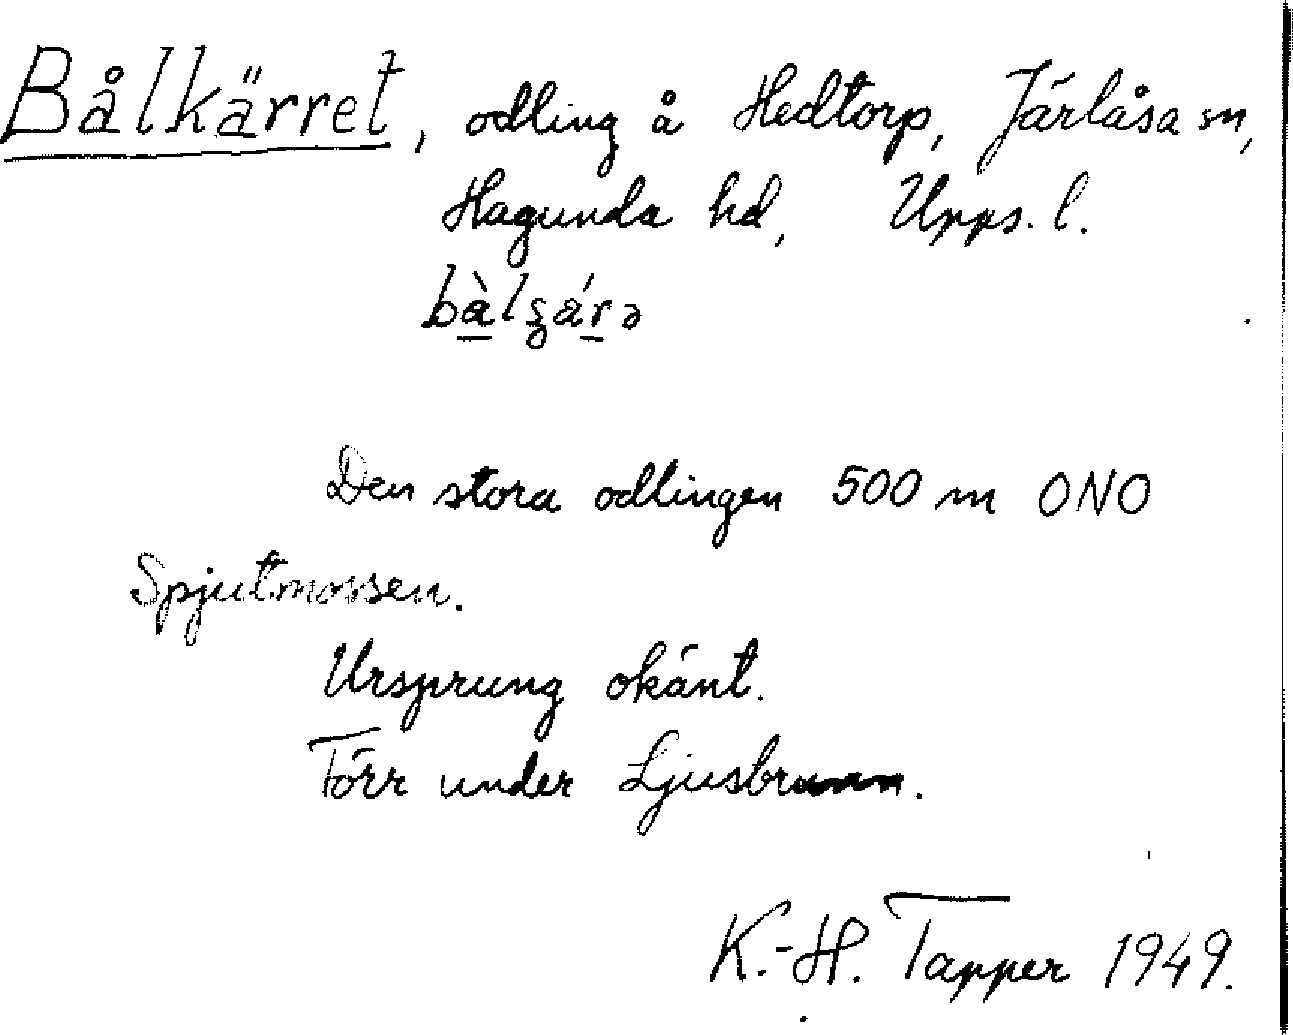 Bålkärret, odling å Hedtorp, Järlåsa sn,
Hagunda hd, Upps. l.
Den stora odlingen 500 m ONO
Spjutmossen.
Ursprung okänt.
Förr under Ljusbrunn.
K.-H. Tapper 1949.